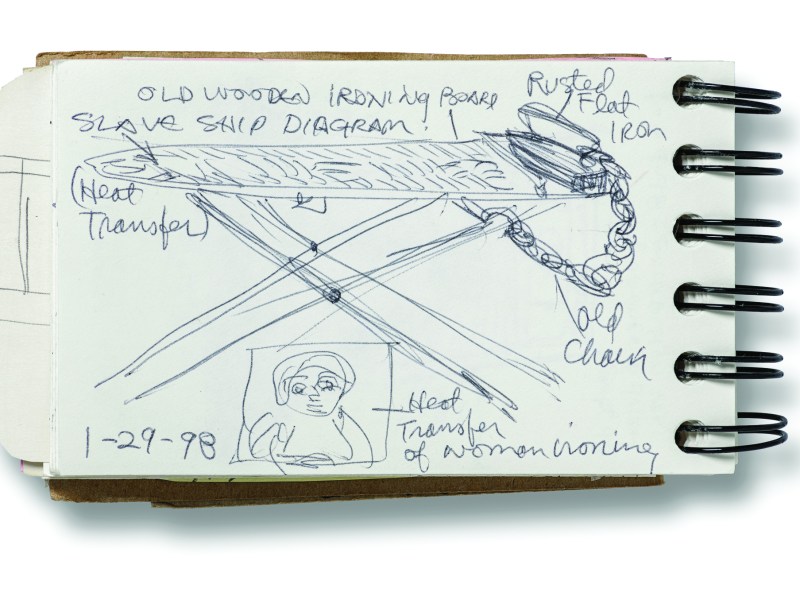 OLD WOODEN IRONING BOARD
SLAVE SHIP DIAGRAM.
Rusted
Flat
IRON
(Heat
Transfer)
Old
Chain
Heat
Transfer
of woman ironing
1-29-98